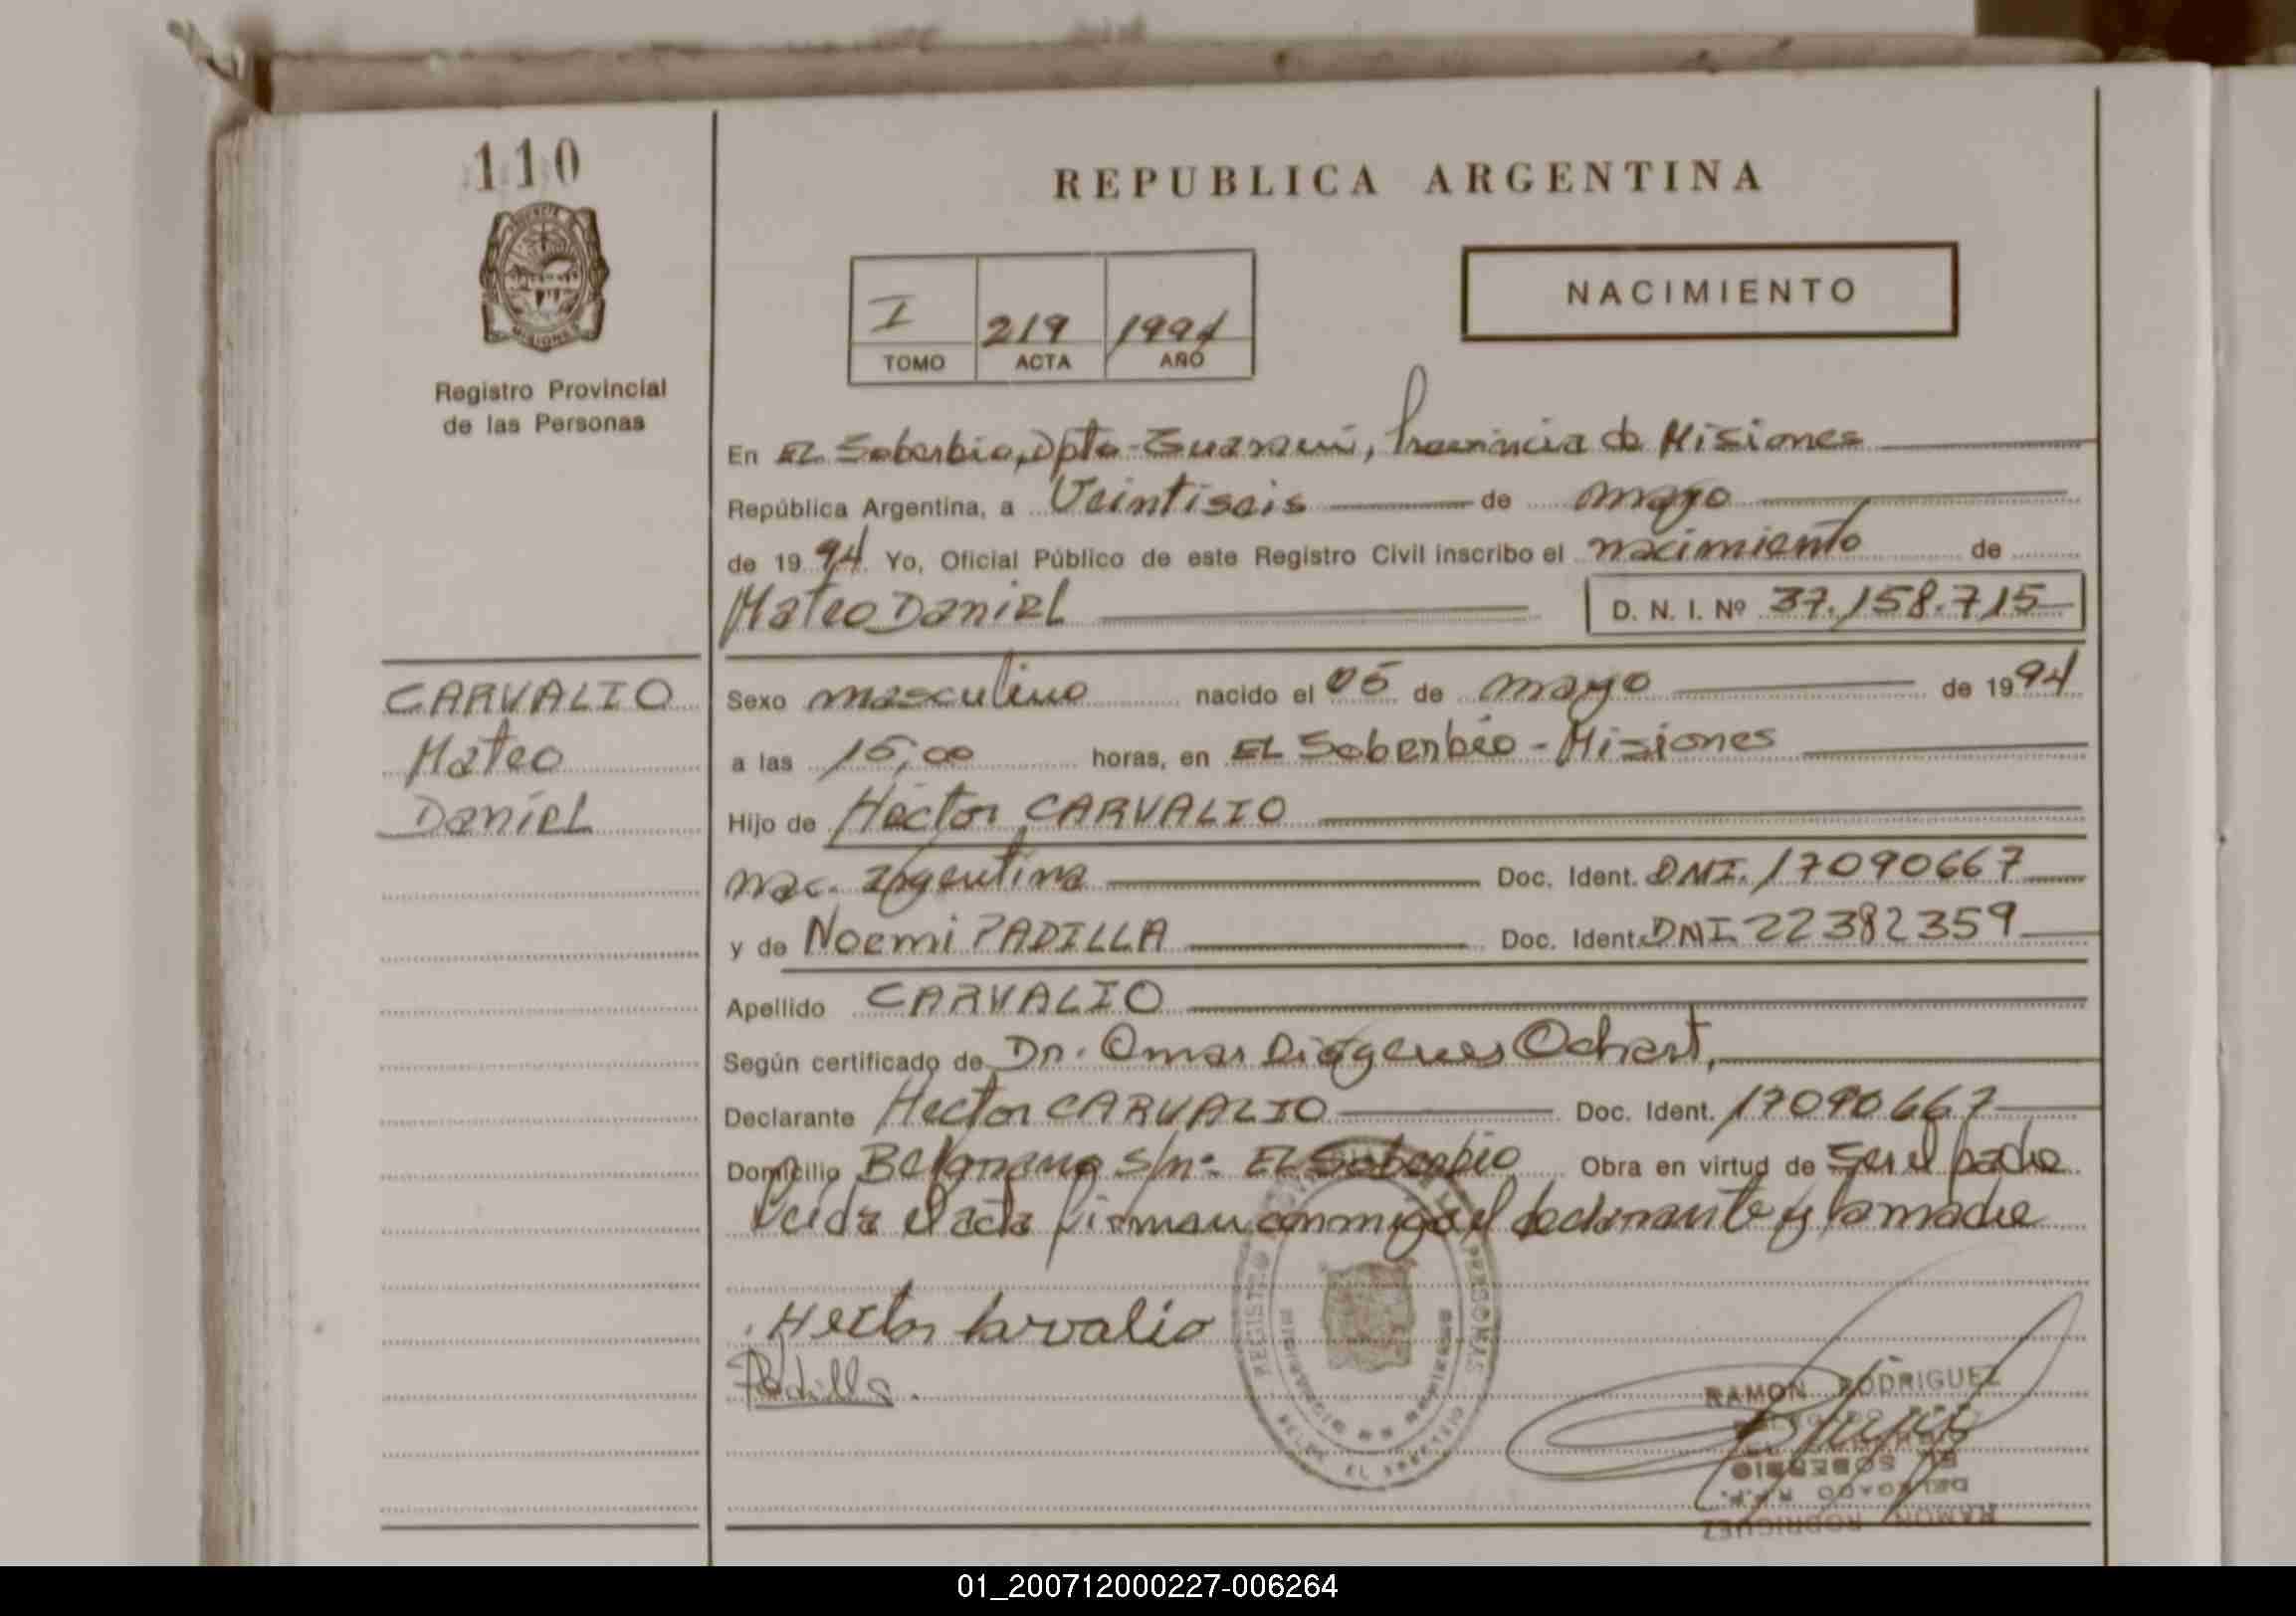 110
REPUBLICA ARGENTINA
NACIMIENTO
I 219 1994
TOMO ACTA AÑO
Registro Provincial
de las Personas
En EL Soberbio, Dpto-Guaraní, Provincia de Misiones
República Argentina, a Veintiseis de mayo
de 1994. Yo, Oficial Público de este Registro Civil inscribo el nacimiento de
Mateo DaniEL D. N. I. Nº 37.158.715
CARVALIO
Mateo
DaniEL
Sexo masculino nacido el 05 de mayo de 1994
a las 15,00 horas, en EL Soberbio - Misiones
Hijo de Héctor CARVALIO
nac. argentina Doc. Ident. DNI. 17090667
y de Noemi PADILLA Doc. Ident. DNI 22382359
Apellido CARVALIO
Según certificado de Dr. Omar Diógenes Ochart,
Declarante Hector CARVALIO Doc. Ident. 17090667
Domicilio Belgrano s/nº EL Soberbio Obra en virtud de Ser el padre
Leida el acta firman conmigo el declarante y la madre
Hector Carvalio
Padilla.
REGISTRO PERSONAS
PROVINCIA DE MISIONES
DELEG. EL SOBERBIO
RAMON RODRIGUEZ
EL SOBERBIO
DELEGADO R.P.P.
RAMON RODRIGUEZ
01_200712000227-006264